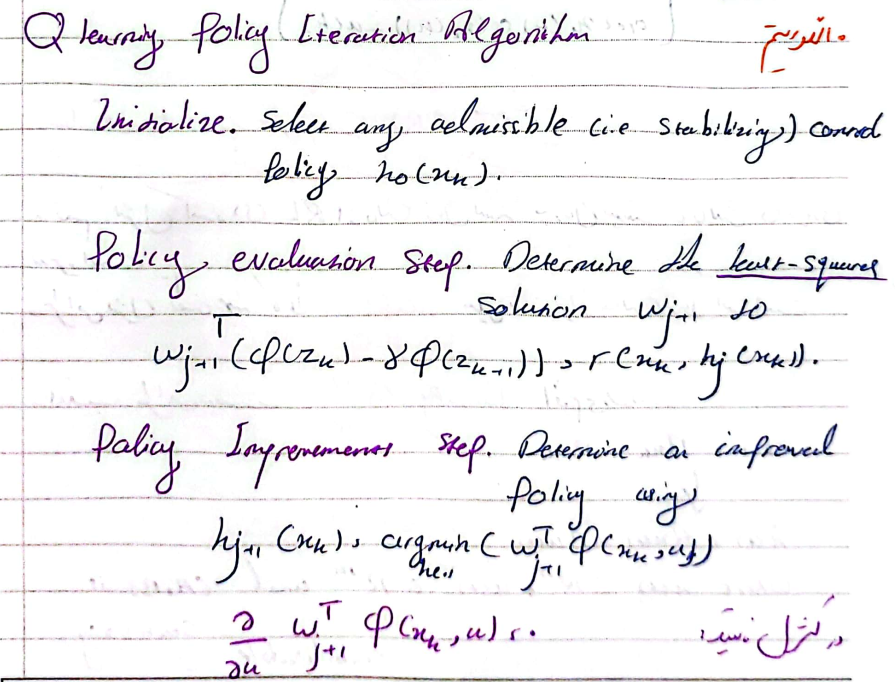 Q learning Policy Iteration Algorithm
Initialize. Select any admissible (i.e stabilizing) control
Policy h₀(xₖ).
Policy evaluation Step. Determine the least-squares
solution Wⱼ₊₁ to
Wⱼ₊₁ᵀ(φ(zₖ) - γφ(zₖ₊₁)) = r(xₖ, hⱼ(xₖ)).
Policy Improvement Step. Determine an improved
Policy using
hⱼ₊₁(xₖ) = argmin(Wⱼ₊₁ᵀ φ(xₖ, u))
h(·)
∂/∂u Wⱼ₊₁ᵀ φ(xₖ, u) = 0 در کنترل